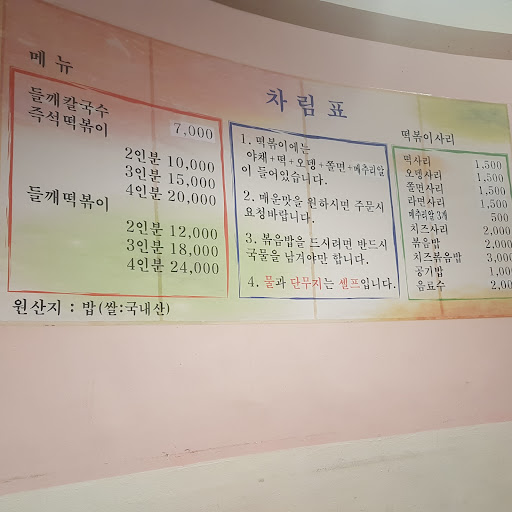 메 뉴
들깨칼국수 7,000
즉석떡볶이
2인분 10,000
3인분 15,000
4인분 20,000
들깨떡볶이
2인분 12,000
3인분 18,000
4인분 24,000
원산지 : 밥(쌀:국내산)
차 림 표
1. 떡볶이에는
야채+떡+오뎅+쫄면+메추리알
이 들어있습니다.
2. 매운맛을 원하시면 주문시
요청바랍니다.
3. 볶음밥을 드시려면 반드시
국물을 남겨야만 합니다.
4. 물과 단무지는 셀프입니다.
떡볶이사리
떡사리 1,500
오뎅사리 1,500
쫄면사리 1,500
라면사리 1,500
메추리알 3개 500
치즈사리 2,000
볶음밥 2,000
치즈볶음밥 3,000
공기밥 1,000
음료수 2,00